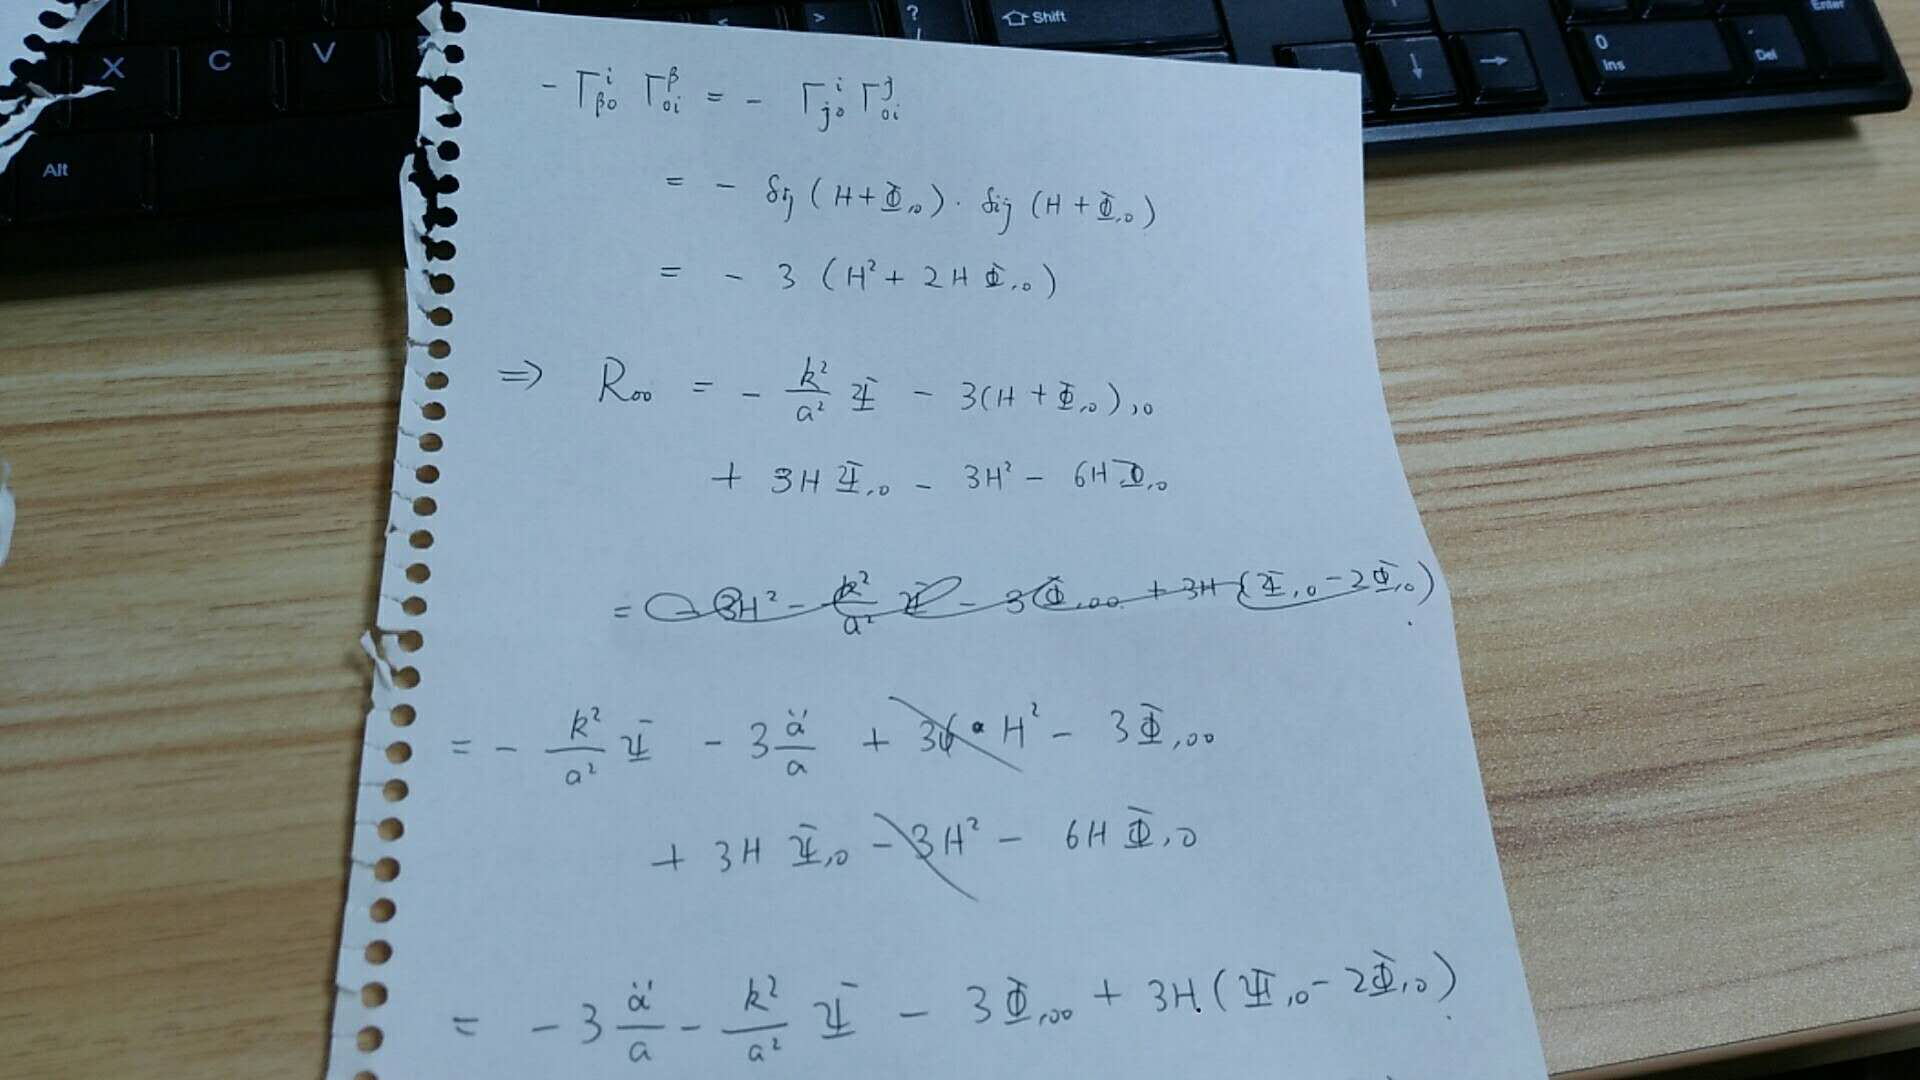 X C V < > ? / ⇧ Shift ↑ Enter
Alt ↓ → 0 Ins . Del
- Γ^i_{β0} Γ^β_{0i} = - Γ^i_{j0} Γ^j_{0i}
= - δ_{ij} (H + Φ_{,0}) · δ_{ij} (H + Φ_{,0})
= - 3 (H² + 2HΦ_{,0})
⇒ R_{00} = - k²/a² Ψ - 3(H + Φ_{,0})_{,0}
+ 3HΨ_{,0} - 3H² - 6HΦ_{,0}
= - 3H² - k²/a² Ψ - 3Φ_{,00} + 3H(Ψ_{,0} - 2Φ_{,0})
= - k²/a² Ψ - 3 ä/a + 3 H² - 3Φ_{,00}
+ 3HΨ_{,0} - 3H² - 6HΦ_{,0}
= - 3 ä/a - k²/a² Ψ - 3Φ_{,00} + 3H(Ψ_{,0} - 2Φ_{,0})